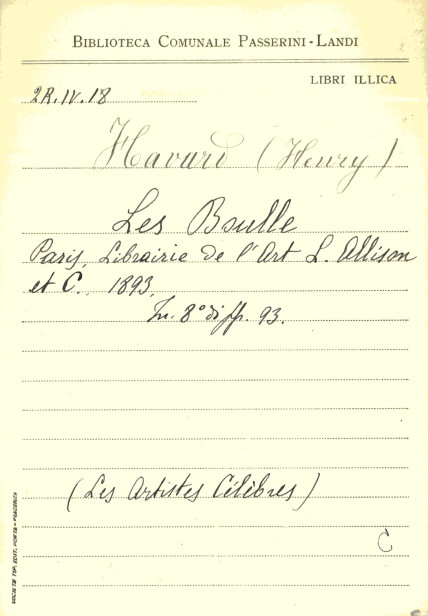 BIBLIOTECA COMUNALE PASSERINI-LANDI
LIBRI ILLICA
2R.IV.18
Havard (Henry)
Les Boulle
Paris, Librairie de l'Art L. Allison
et C. 1893.
In. 8° di pp. 93.
(Les Artistes Célèbres)
C